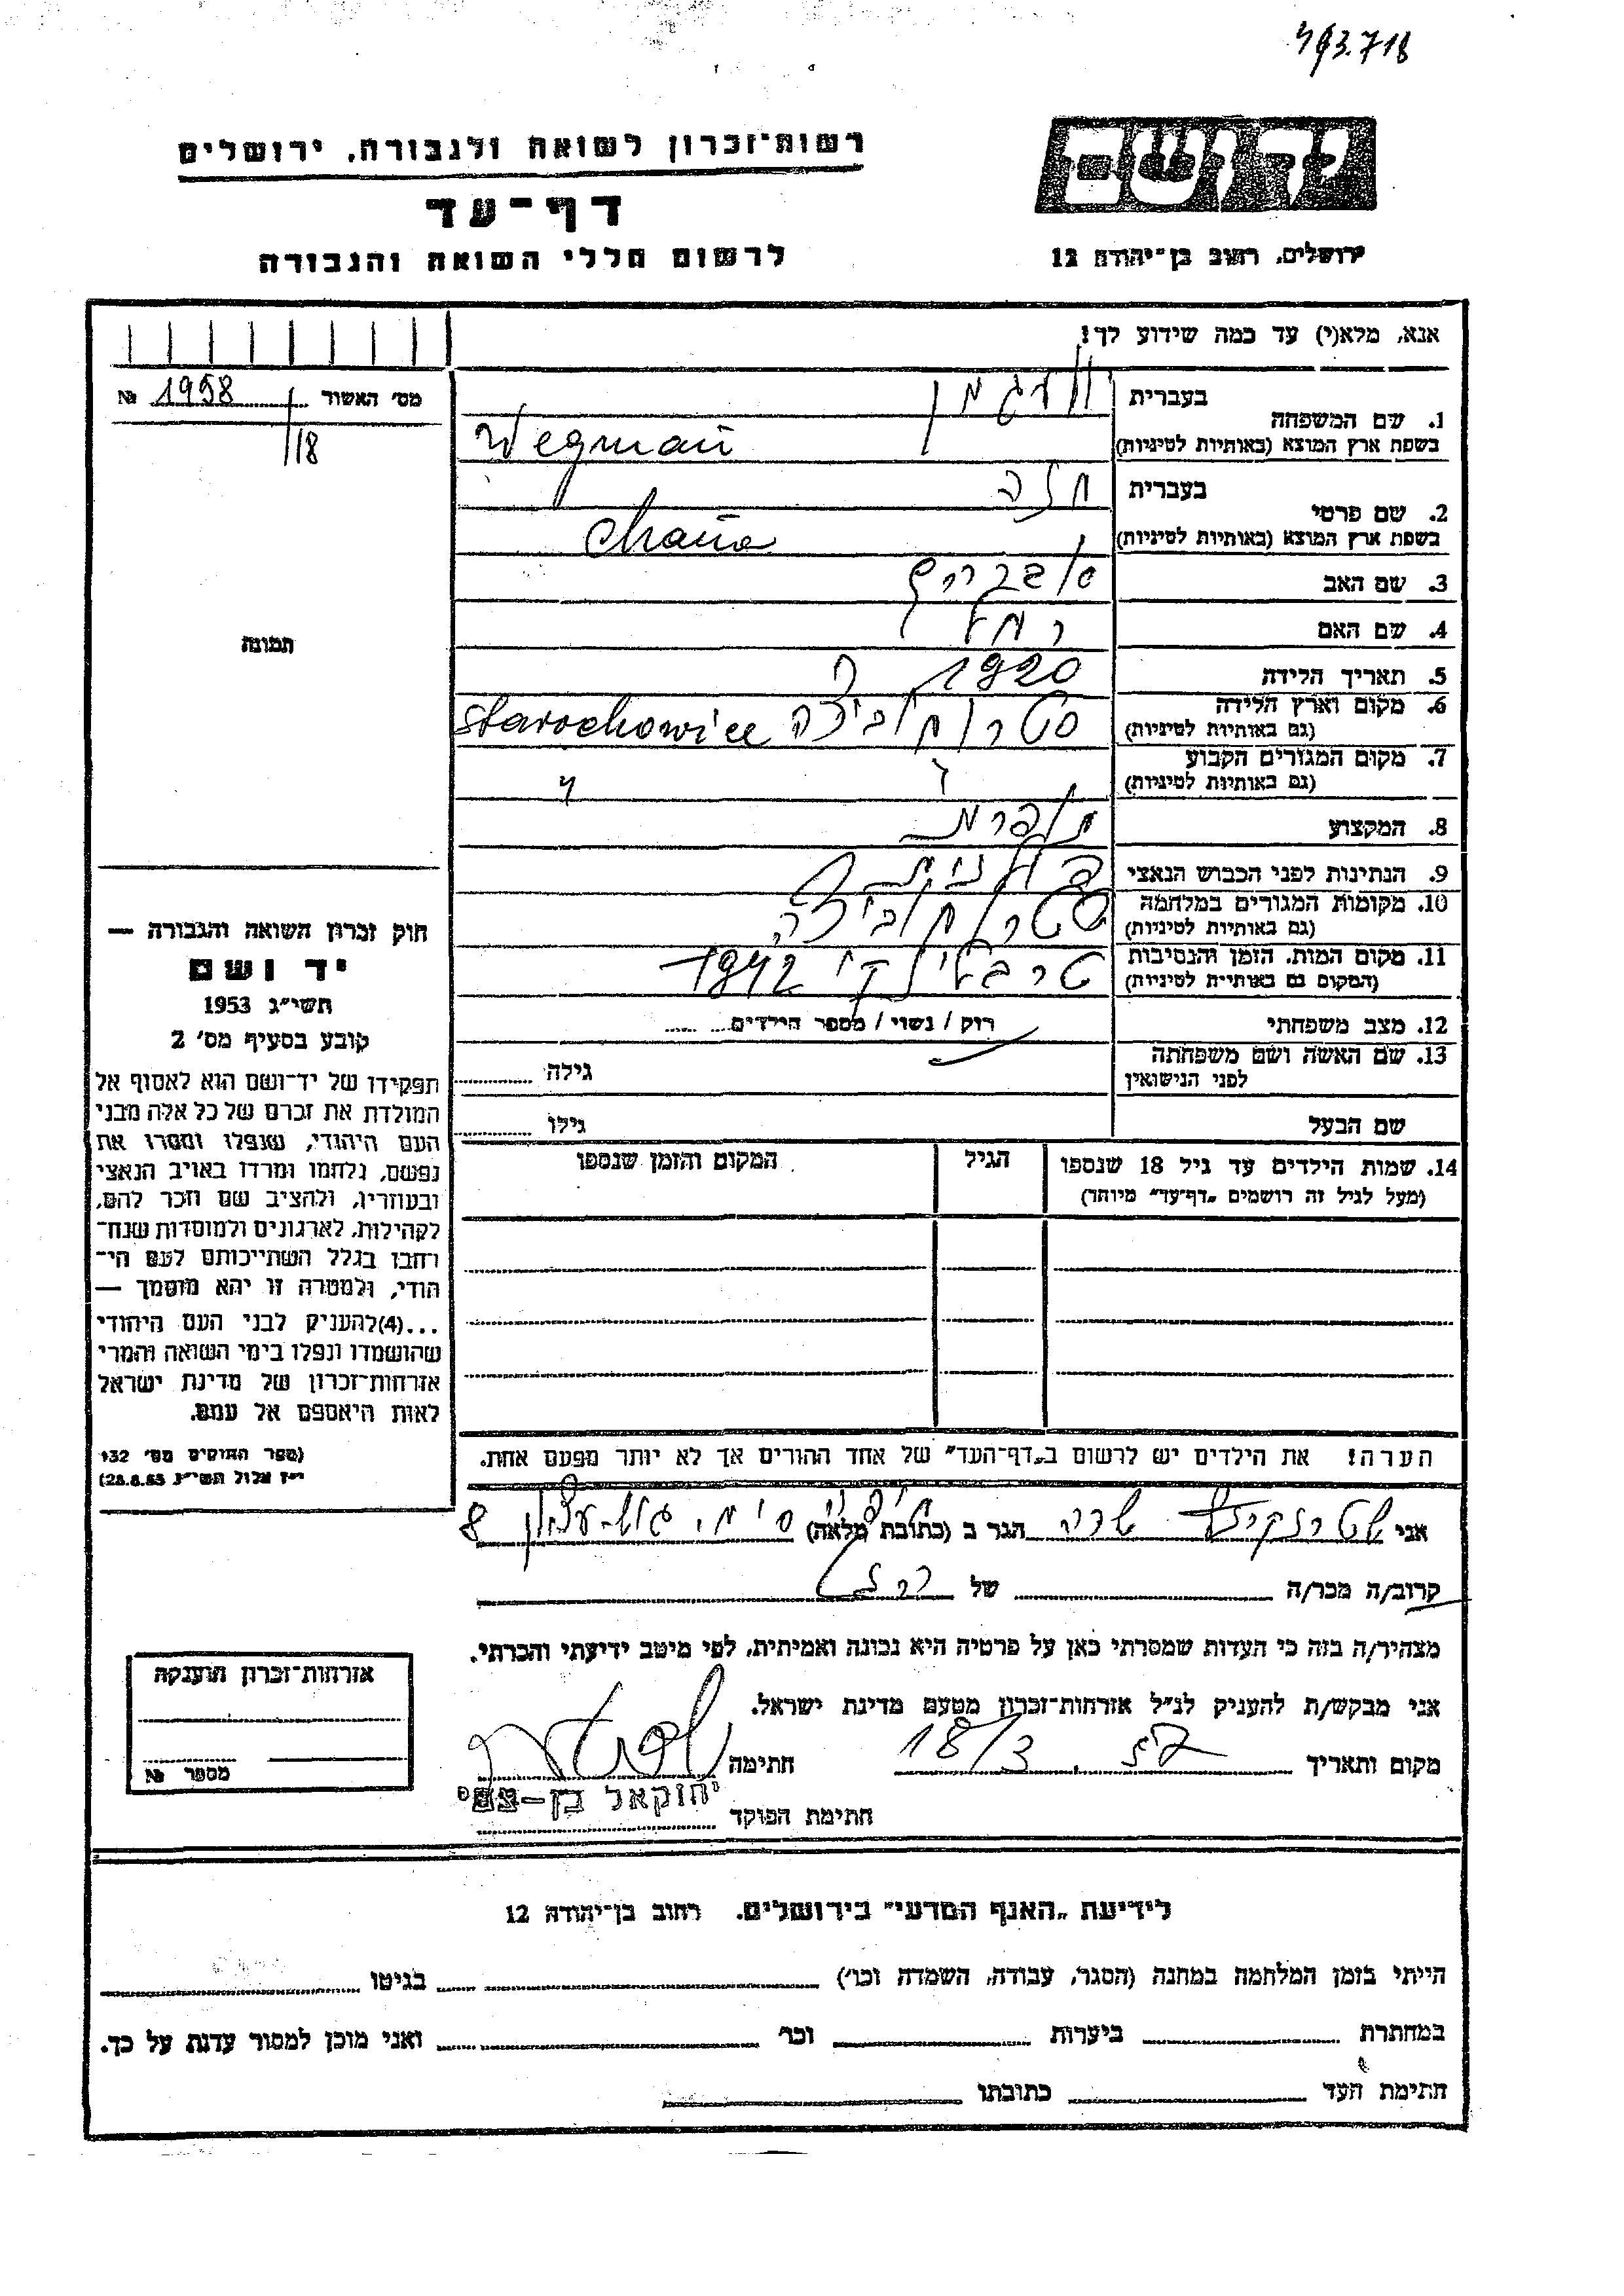 רשות־זכרון לשואה ולגבורה, ירושלים
יד ושם
דף־עד
לרשום חללי השואה והגבורה
ירושלים, רחוב בן־יהודה 12
אנא, מלא(י) עד כמה שידוע לך!
מס׳ האשור № 1958
/18
תמונה
1. שם המשפחה
בעברית
וועגמן
בשפת ארץ המוצא (באותיות לטיניות) Wegman
2. שם פרטי
בעברית חנה
בשפת ארץ המוצא (באותיות לטיניות) Chana
3. שם האב אברהם
4. שם האם רחל
5. תאריך הלידה 1920
6. מקום וארץ הלידה
(גם באותיות לטיניות) סטרוחוביצה Starochowice
7. מקום המגורים הקבוע
(גם באותיות לטיניות)
8. המקצוע תופרת
9. הנתינות לפני הכבוש הנאצי פולנית
10. מקומות המגורים במלחמה
(גם באותיות לטיניות) סטרוחוביצה
11. מקום המות, הזמן והנסיבות
(המקום גם באותיות לטיניות) 1942
12. מצב משפחתי רוק / נשוי / מספר הילדים
13. שם האשה ושם משפחתה
לפני הנישואין גילה
שם הבעל גילו
14. שמות הילדים עד גיל 18 שנספו הגיל המקום והזמן שנספו
(מעל לגיל זה רושמים „דף־עד״ מיוחד)
הערה! את הילדים יש לרשום ב„דף־העד״ של אחד ההורים אך לא יותר מפעם אחת.
חוק זכרון השואה והגבורה —
יד ושם
תשי״ג 1953
קובע בסעיף מס׳ 2
תפקידו של יד־ושם הוא לאסוף אל
המולדת את זכרם של כל אלה מבני
העם היהודי, שנפלו ומסרו את
נפשם, נלחמו ומרדו באויב הנאצי
ובעוזריו, ולהציב שם וזכר להם,
לקהילות, לארגונים ולמוסדות שנח־
רבו בגלל השתייכותם לעם הי־
הודי, ולמטרה זו יהא מוסמך —
...(4) להעניק לבני העם היהודי
שהושמדו ונפלו בימי השואה והמרי
אזרחות־זכרון של מדינת ישראל
לאות היאספם אל עמם.
(ספר החוקים מס׳ 132
י״ז אלול תשי״ג 28.8.53)
אני שרה הגר ב (כתובת מלאה) חיפה 8
קרוב/ה מכר/ה של
מצהיר/ה בזה כי העדות שמסרתי כאן על פרטיה היא נכונה ואמיתית, לפי מיטב ידיעתי והכרתי.
אני מבקש/ת להעניק לנ״ל אזרחות־זכרון מטעם מדינת ישראל.
מקום ותאריך 18/3.57 חתימה
חתימת הפוקד יחזקאל בן־צבי
אזרחות־זכרון הוענקה
מספר №
לידיעת „האנף המדעי״ בירושלים. רחוב בן־יהודה 12
הייתי בזמן המלחמה במחנה (הסגר, עבודה, השמדה וכו׳) בגיטו
במחתרת ביערות וכו׳ ואני מוכן למסור עדות על כך.
חתימת העד כתובתו